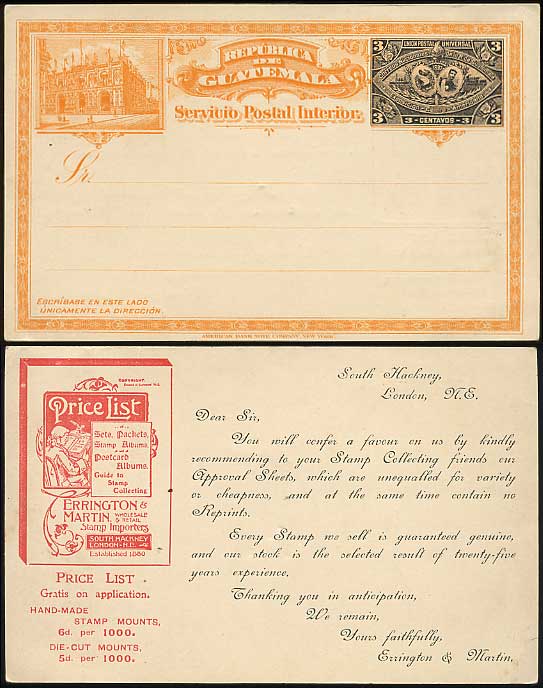 REPÚBLICA
DE
GUATEMALA
Servicio Postal Interior.
3 UNION POSTAL UNIVERSAL 3
3 3 - CENTAVOS - 3 3
Sr.
ESCRÍBASE EN ESTE LADO
ÚNICAMENTE LA DIRECCIÓN.
AMERICAN BANK NOTE COMPANY, NEW YORK.
COPYRIGHT.
Price List
of
Sets, Packets,
Stamp Albums,
Postcard
Albums.
Guide to
Stamp
Collecting
ERRINGTON &
MARTIN, WHOLESALE
& RETAIL
Stamp Importers
SOUTH HACKNEY
LONDON·N.E.
Established 1880
PRICE LIST.
Gratis on application.
HAND-MADE
STAMP MOUNTS,
6d. per 1000.
DIE-CUT MOUNTS,
5d. per 1000.
South Hackney,
London, N.E.
Dear Sir,
You will confer a favour on us by kindly
recommending to your Stamp Collecting friends our
Approval Sheets, which are unequalled for variety
or cheapness, and at the same time contain no
Reprints.
Every Stamp we sell is guaranteed genuine,
and our stock is the selected result of twenty-five
years experience.
Thanking you in anticipation,
We remain,
Yours faithfully,
Errington & Martin.